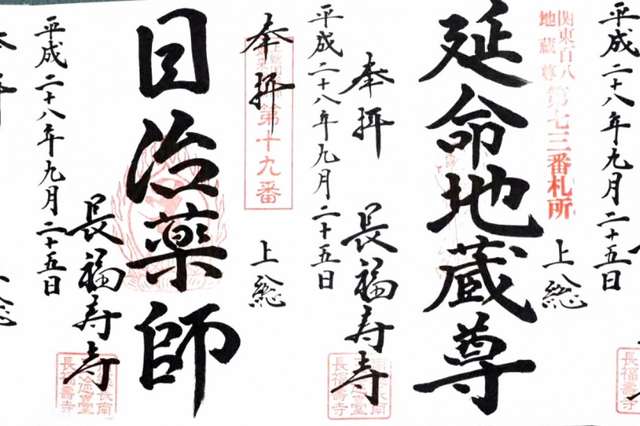 平成二十八年九月二十五日
関東百八
地蔵尊
第七三番札所
奉拝
上総
延命地蔵尊
長福寿寺
平成二十八年九月二十五日
奉拝
第十九番
上総
目治薬師
長福寿寺
平成二十八年九月二十五日
長福壽寺
長福壽寺